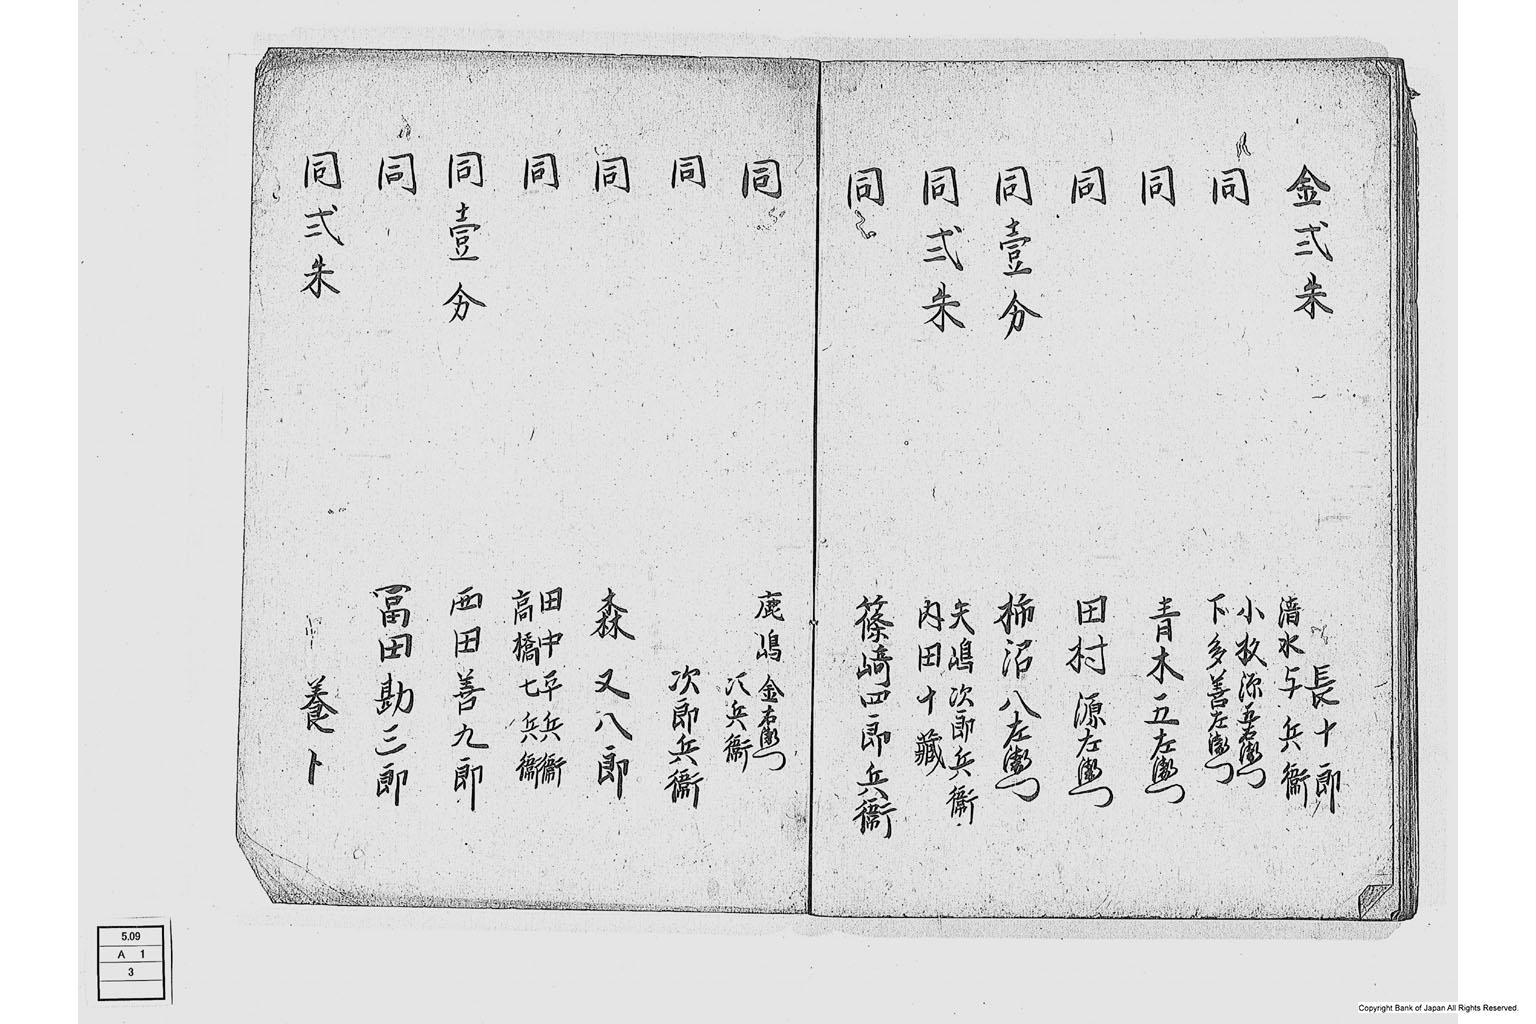 金弐朱
長十郎
清水与兵衛
同
小牧源五右衛門
下多善左衛門
同
青木五左衛門
同
田村源左衛門
同壹分
柿沼八左衛門
同弐朱
矢嶋次郎兵衛
内田十藏
同
篠﨑四郎兵衛
同
鹿嶋金右衛門
八兵衛
同
次郎兵衛
同
森又八郎
同
田中平兵衛
高橋七兵衛
同壹分
西田善九郎
同
冨田勘三郎
同弐朱
養卜
5.09
A 1
3
Copyright Bank of Japan All Rights Reserved.